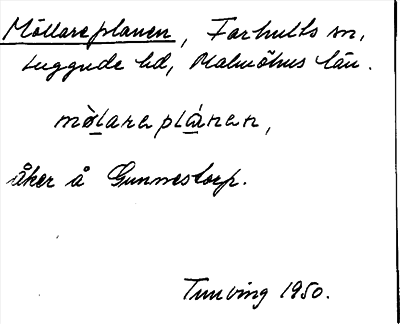 Möllareplanen, Farhults sn,
Luggude hd, Malmöhus län.
mølareplánen,
åker å Gunnestorp.
Tunving 1950.